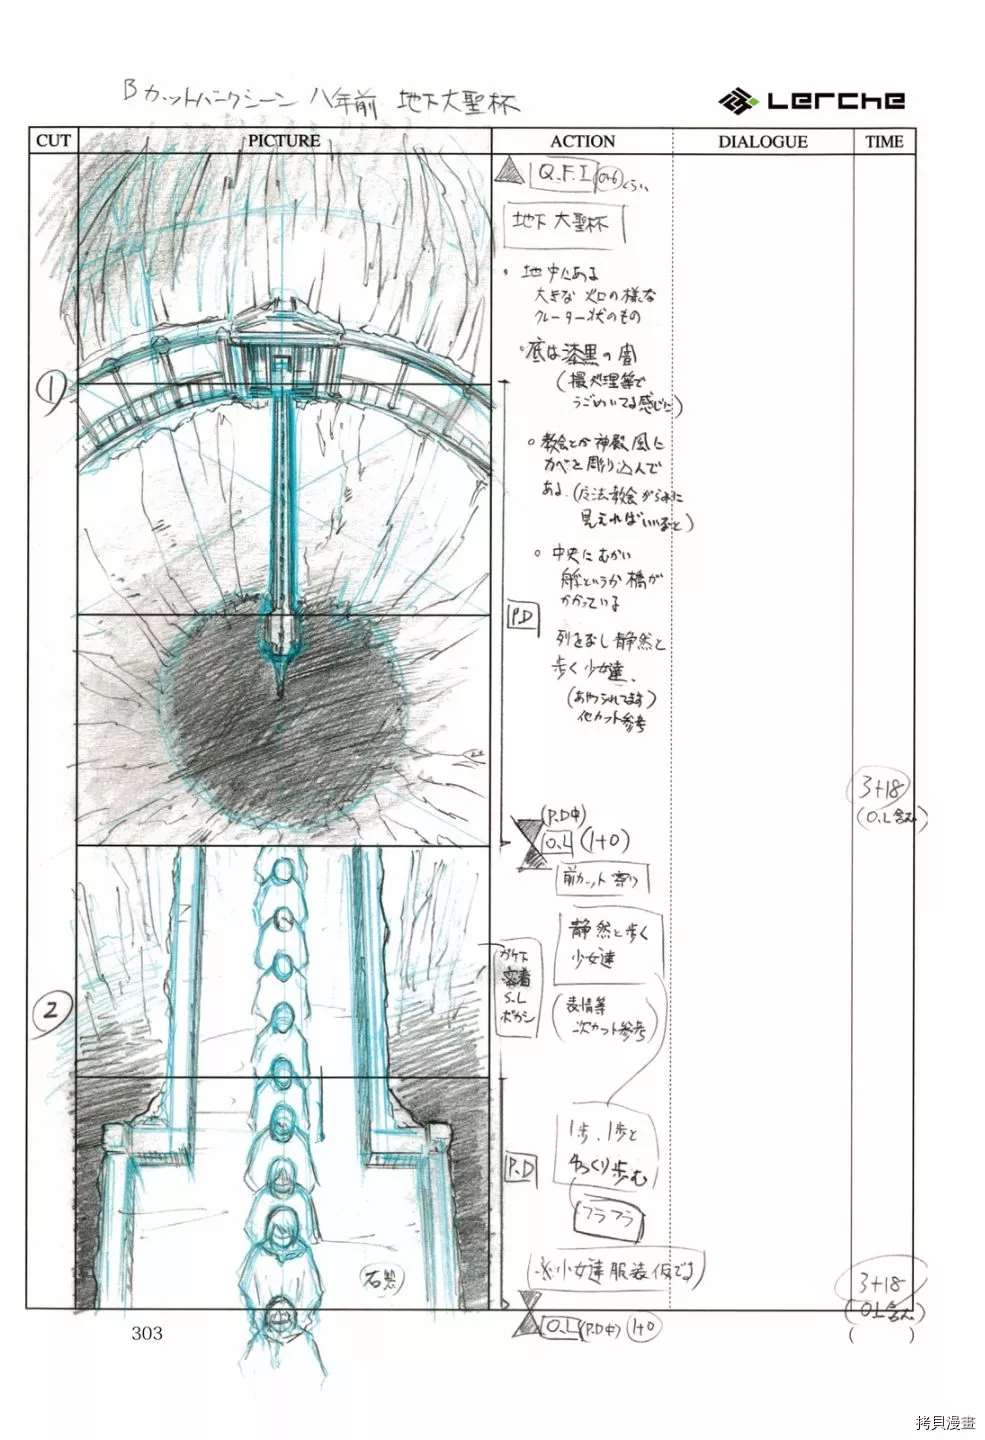 Bカットバンクシーン 八年前 地下大聖杯
Lerche
CUT PICTURE ACTION DIALOGUE TIME
Q.F.I (0+6)くらい
地下 大聖杯
・地中にある
大きな 火口の様な
クレーター状のもの
・底は漆黒の闇
(撮処理等で
うごめいてる感じに)
①
・教会とか神殿風に
カベを彫り込んで
ある。
見えればいいかと)
・中央にむかい
橋が
かかっている
P.D
列をなし静然と
歩く少女達、
(あやつられてます)
他カット参考
3+18
(O.L含み)
(P.D中)
O.L (1+0)
前カット寄り
静然と歩く
少女達
ガケ下
密着
S.L
ボカシ
(表情等
次カット参考)
2
1歩、1歩と
ゆっくり歩む
P.D
フラフラ
石畳
※少女達服装仮です
3+18
(O.L含み)
O.L (P.D中) 1+0
303
( )
拷貝漫畫